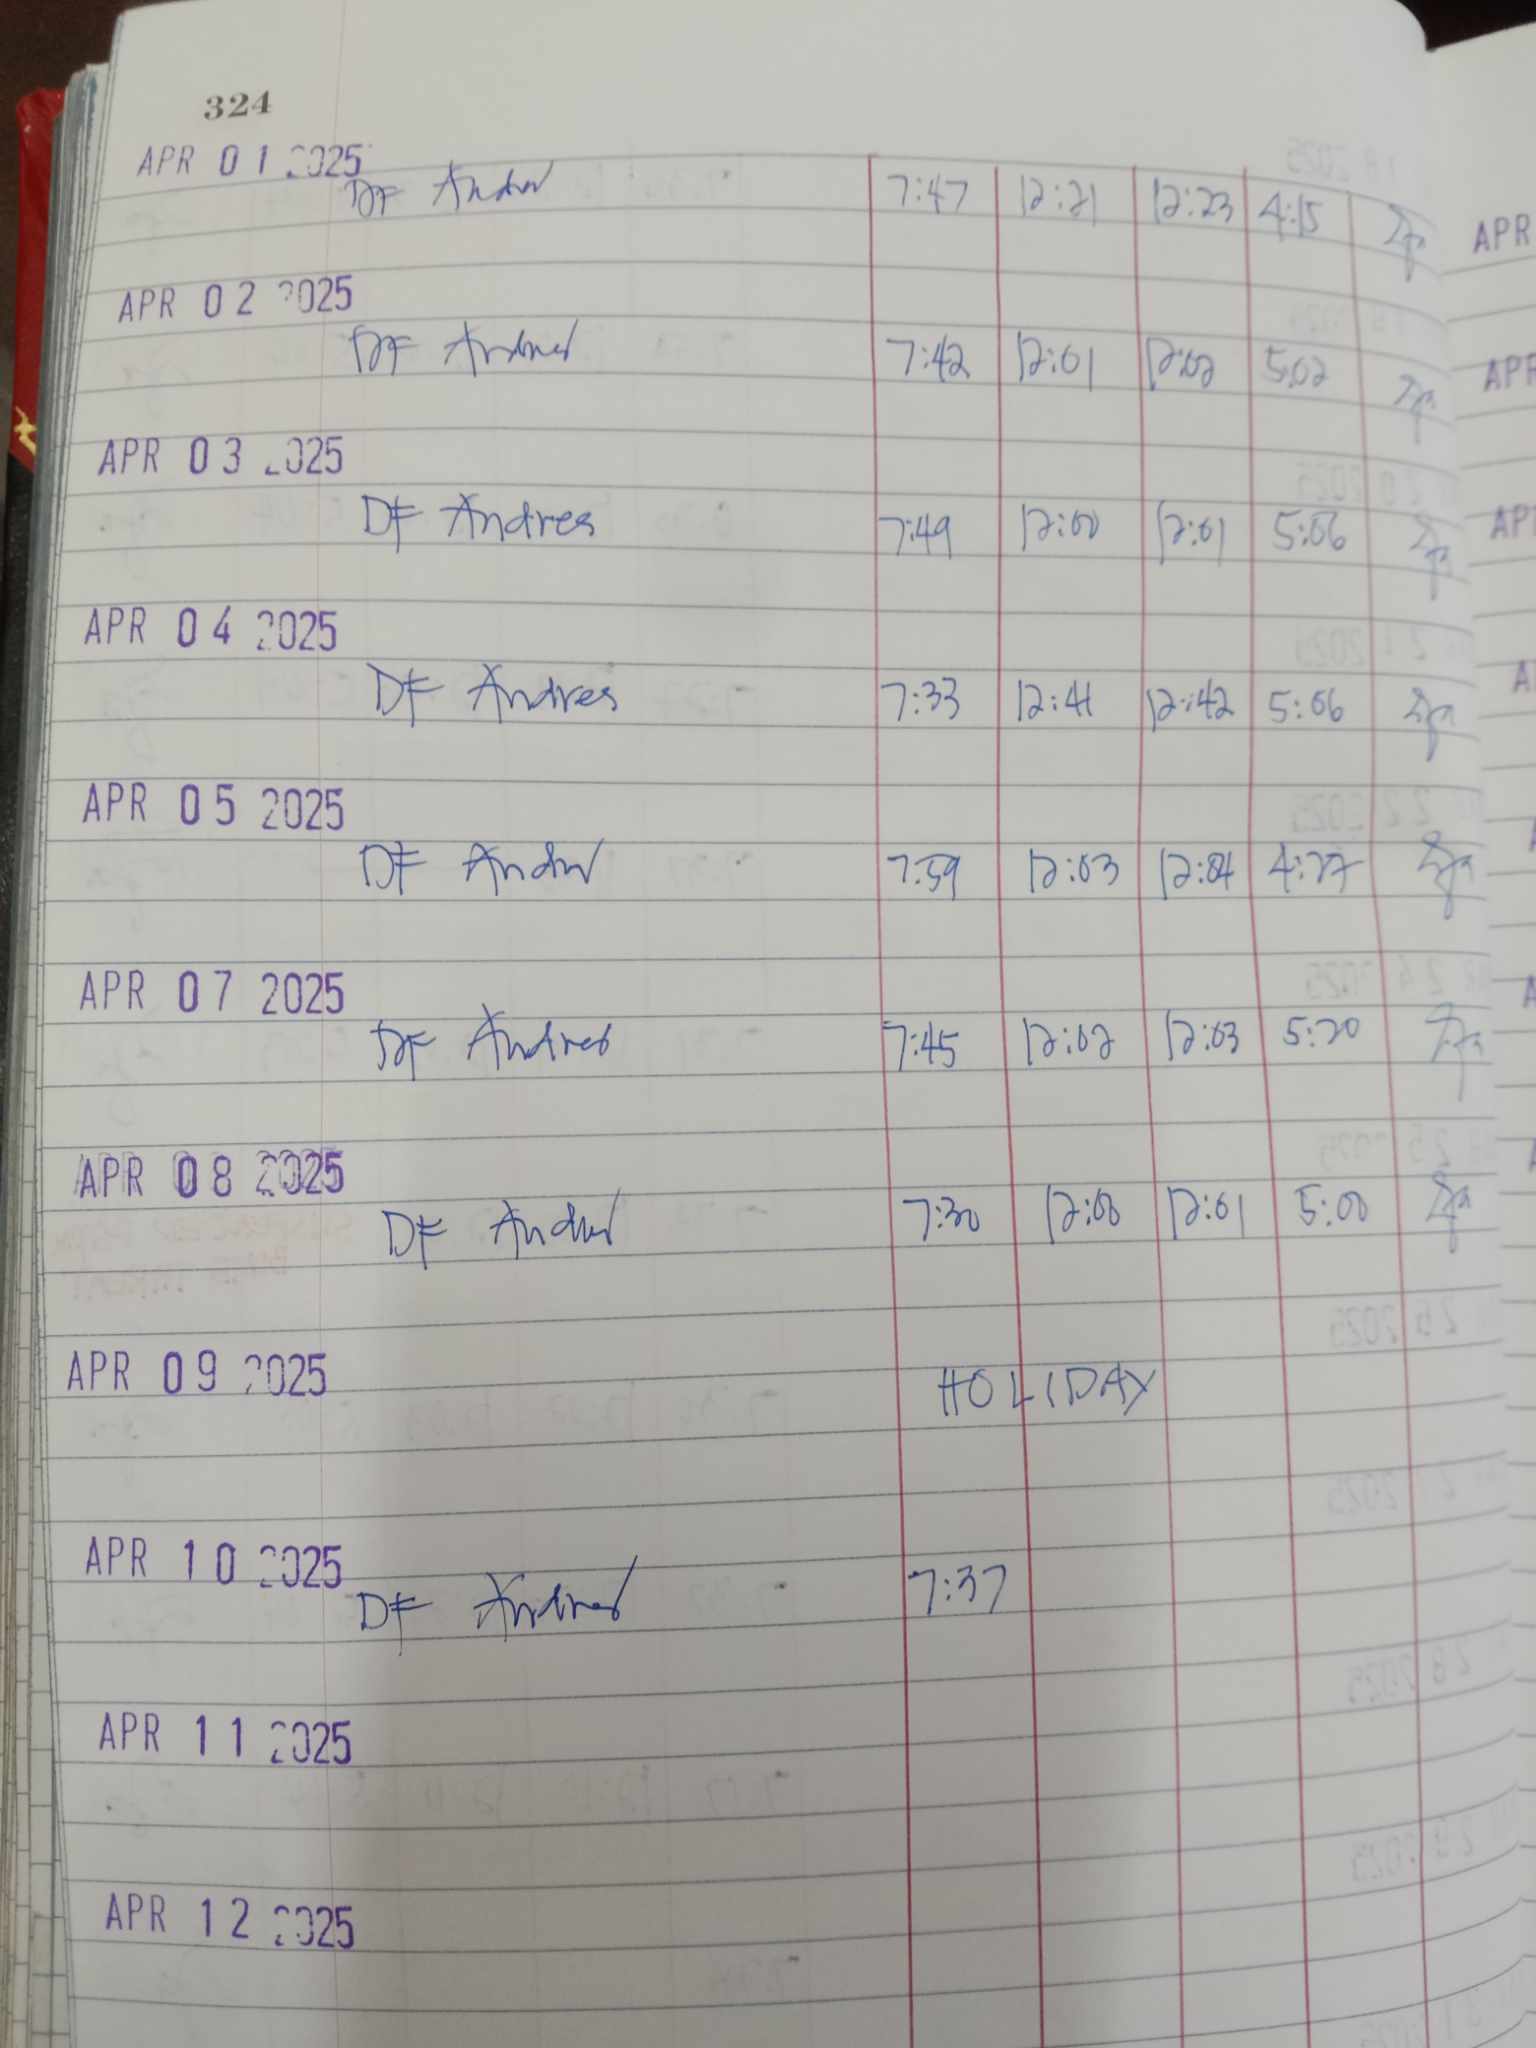 324
APR 01 2025
DF Andres 7:47 12:21 12:23 4:15
APR 02 2025
DF Andres 7:42 12:01 12:02 5:02
APR 03 2025
DF Andres 7:49 12:00 12:01 5:06
APR 04 2025
DF Andres 7:33 12:41 12:42 5:06
APR 05 2025
DF Andres 7:59 12:03 12:04 4:27
APR 07 2025
DF Andres 7:45 12:02 12:03 5:20
APR 08 2025
DF Andres 7:30 12:00 12:01 5:00
APR 09 2025
HOLIDAY
APR 10 2025
DF Andres 7:37
APR 11 2025
APR 12 2025
APR
APR